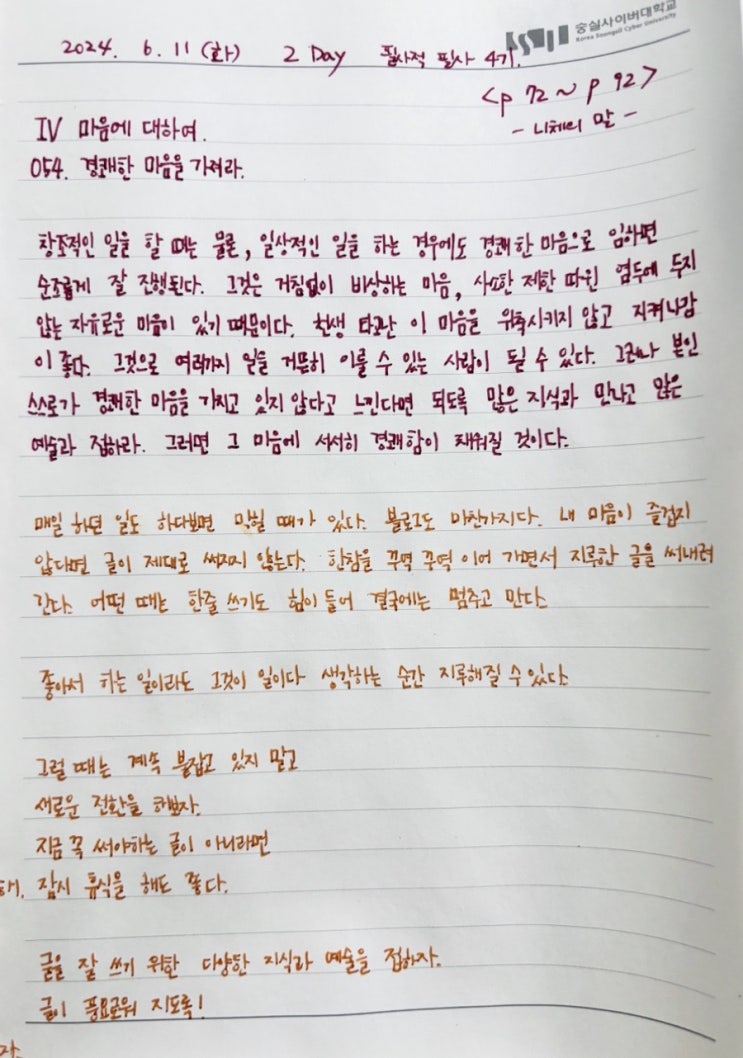 숭실사이버대학교
Korea Soongsil Cyber University
2024. 6. 11 (화) 2 Day 필사적 필사 4기.
<p 72 ~ p 92>
- 니체의 말 -
IV 마음에 대하여.
054. 경쾌한 마음을 가져라.
창조적인 일을 할 때는 물론, 일상적인 일을 하는 경우에도 경쾌한 마음으로 임하면
순조롭게 잘 진행된다. 그것은 거침없이 비상하는 마음, 사소한 제한 따윈 염두에 두지
않는 자유로운 마음이 있기 때문이다. 천생 타고난 이 마음을 위축시키지 않고 지켜나감
이 좋다. 그것으로 여러가지 일들 거뜬히 이룰 수 있는 사람이 될 수 있다. 그러나 본인
스스로가 경쾌한 마음을 가지고 있지 않다고 느낀다면 되도록 많은 지식과 만나고 많은
예술과 접하라. 그러면 그 마음에 서서히 경쾌함이 채워질 것이다.
매일 하던 일도 하다보면 막힐 때가 있다. 블로그도 마찬가지다. 내 마음이 즐겁지
않다면 글이 제대로 써지지 않는다. 한참을 꾸역 꾸역 이어 가면서 지루한 글을 써내려
간다. 어떤 때는 한줄 쓰기도 힘이 들어 결국에는 멈추고 만다.
좋아서 하는 일이라도 그것이 일이다 생각하는 순간 지루해질 수 있다.
그럴 때는 계속 붙잡고 있지 말고
새로운 전환을 해보자.
지금 꼭 써야하는 글이 아니라면
잠시 휴식을 해도 좋다.
글을 잘 쓰기 위한 다양한 지식과 예술을 접하자.
글이 풍요로워 지도록!